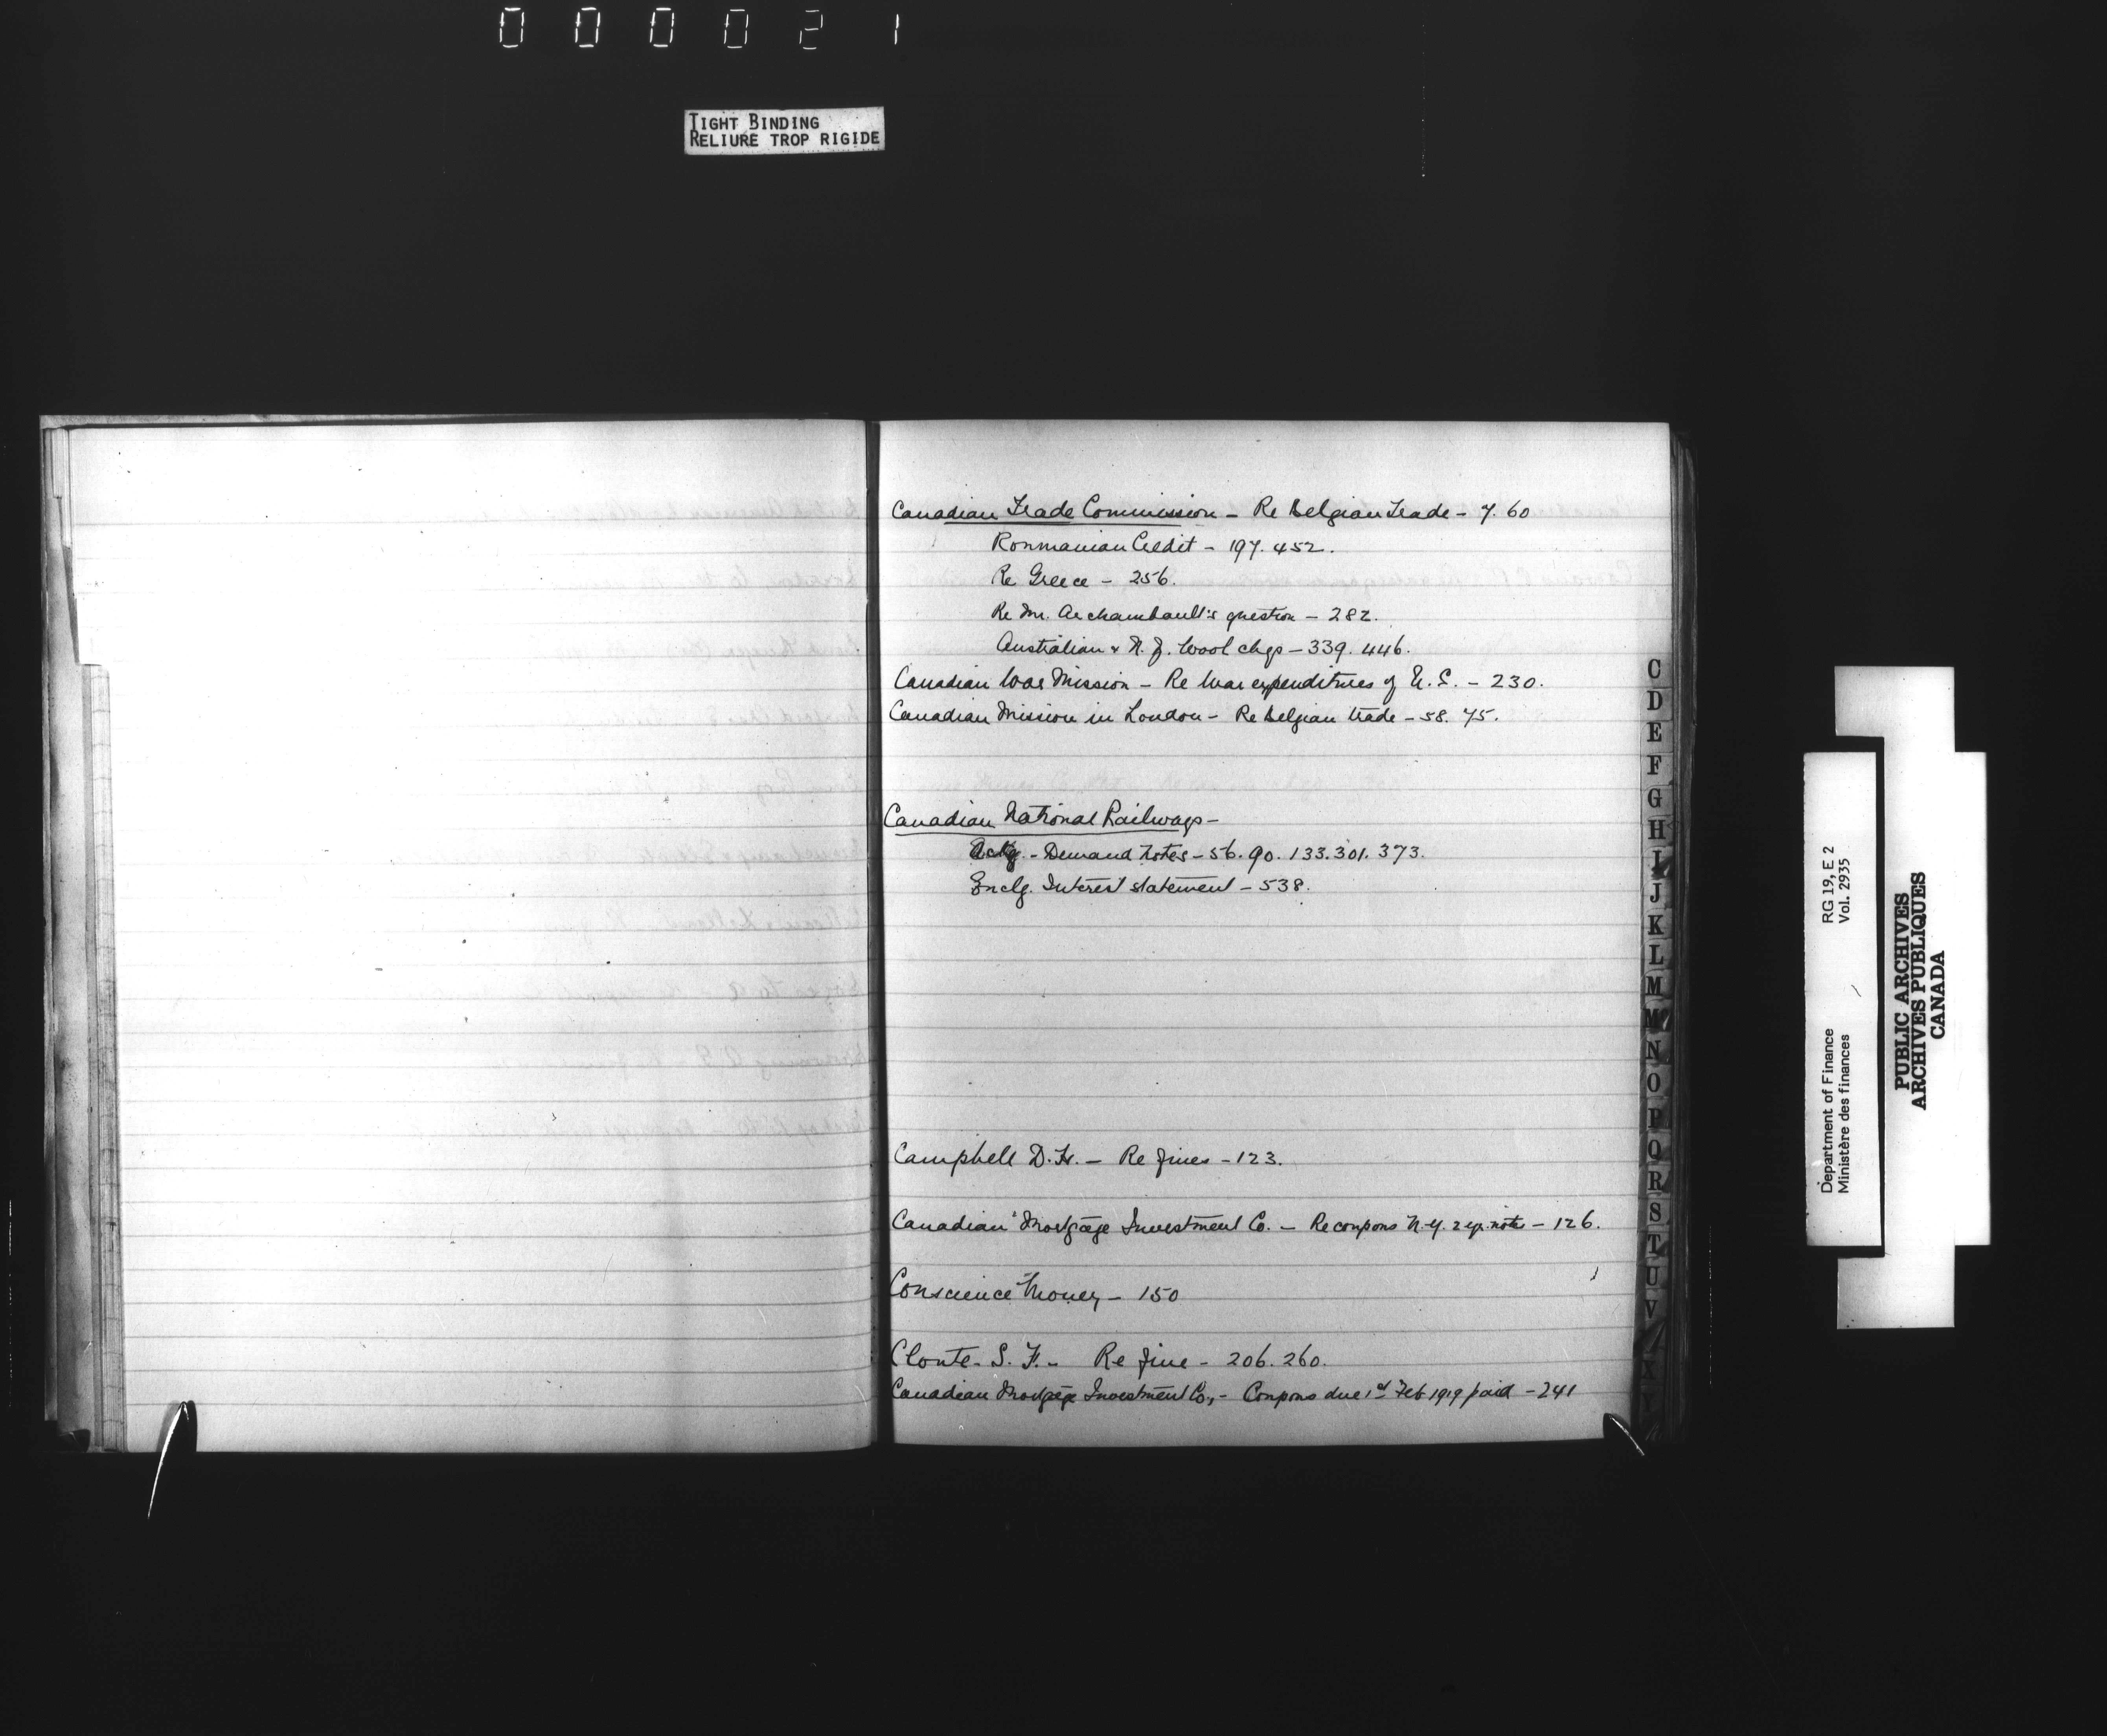 000021
TIGHT BINDING
RELIURE TROP RIGIDE
Canadian Trade Commission - Re Belgian Trade - 7. 60
Roumanian Credit - 197. 452.
Re Greece - 256.
Re Mr. Archambault's question - 282.
Australian & N. Z. Wool chgs - 339. 446.
Canadian War Mission - Re War expenditures of U. S. - 230.
Canadian Mission in London - Re Belgian trade - 58. 75.
Canadian National Railways -
Ackg. - Demand Notes - 56. 90. 133. 301. 373.
Enclg. Interest statement - 538.
Campbell D. H. - Re fines - 123.
Canadian Mortgage Investment Co. - Re coupons N.Y. 2 yr. note - 126.
Conscience Money - 150
Cloute S. F. - Re fine - 206. 260.
Canadian Mortgage Investment Co, - Coupons due 1st Feb 1919 paid - 241
C
D
E
F
G
H
I
J
K
L
M
Mc
N
O
P
Q
R
S
T
U
V
RG 19, E 2
Vol. 2935
Department of Finance
Ministère des finances
PUBLIC ARCHIVES
ARCHIVES PUBLIQUES
CANADA